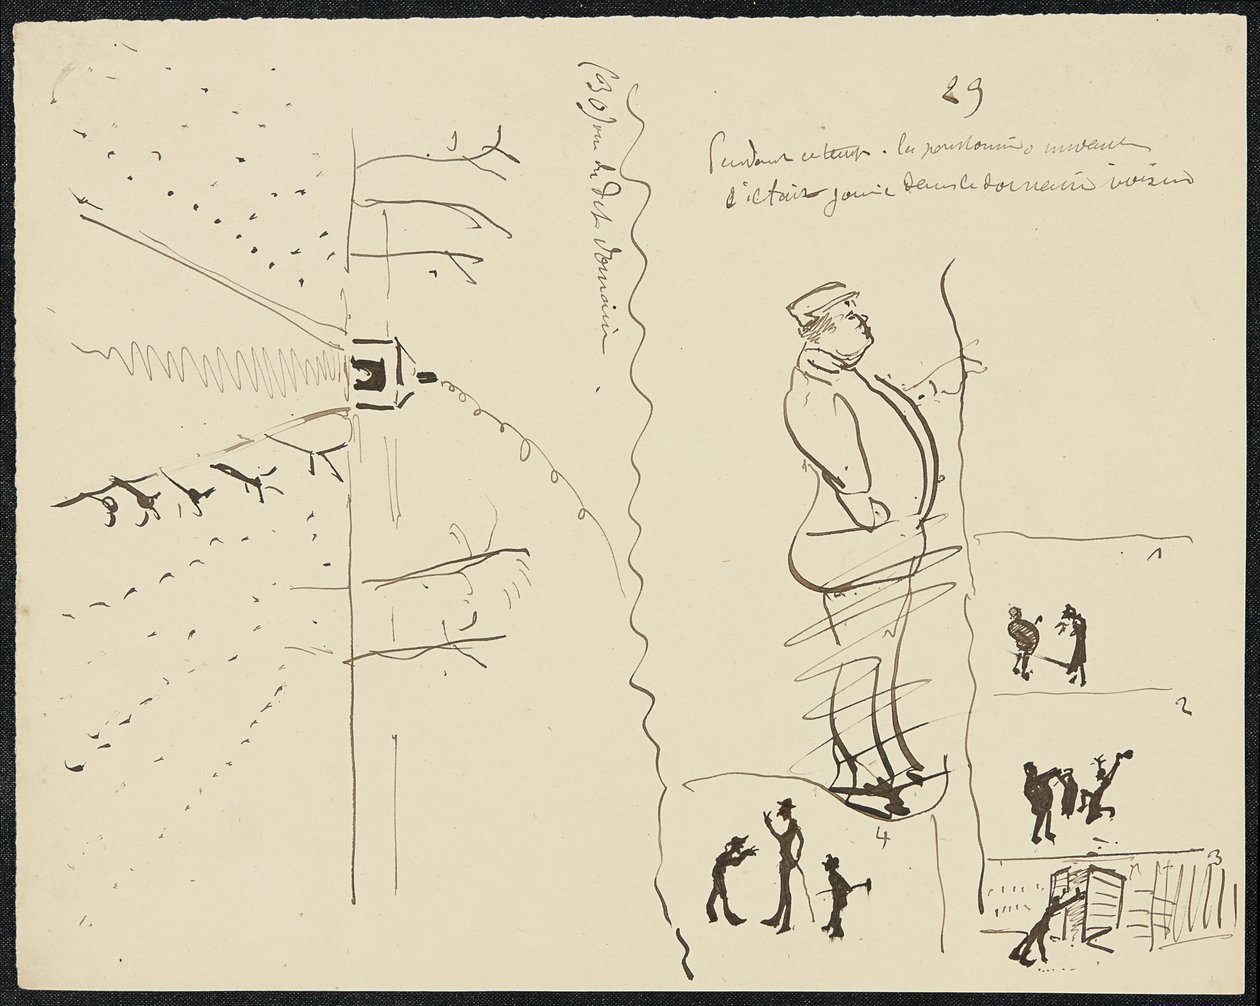 (30) vue du dit domaine
29
Pendant ce temps. la pantomime suivante
s'était jouée dans le domaine voisin
1
2
3
4